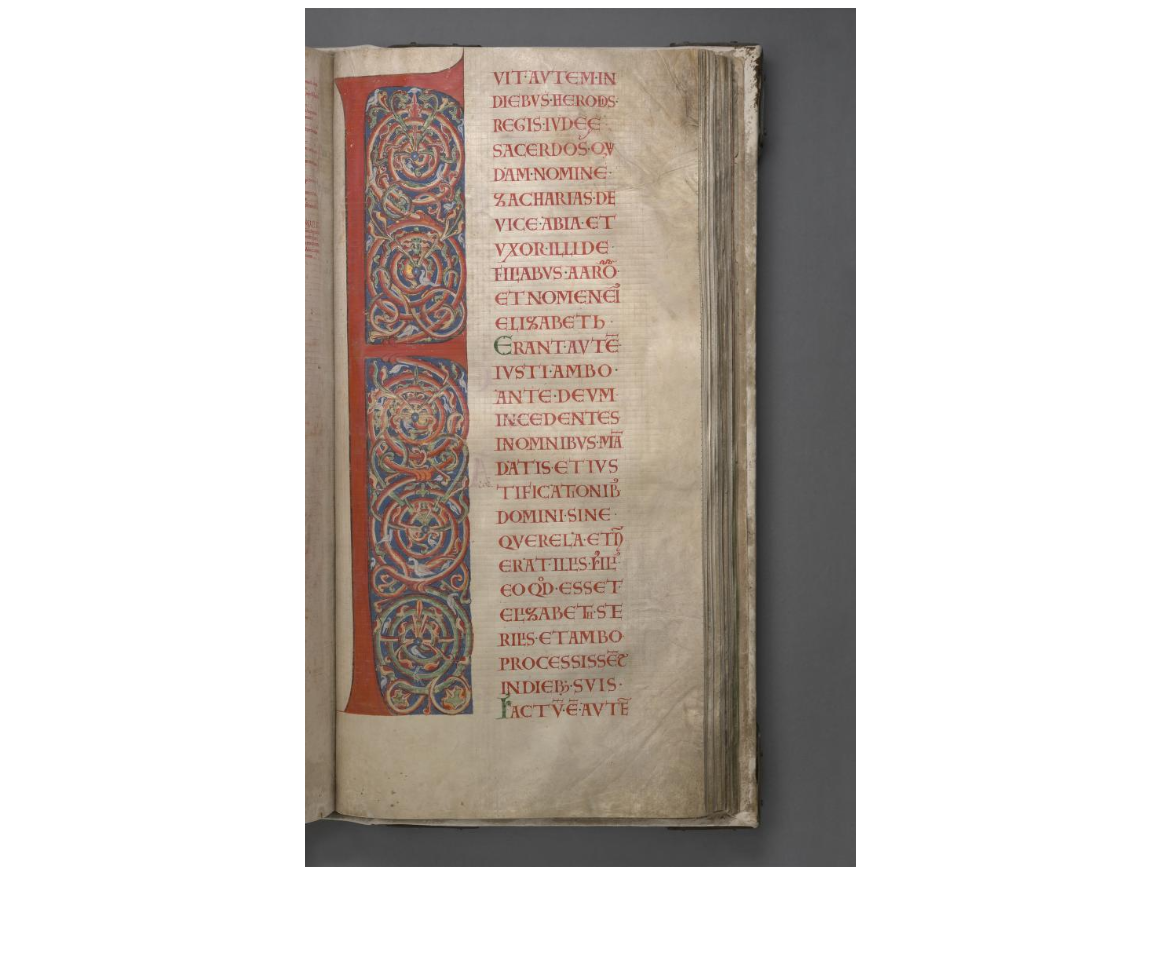 F
VIT·AVTEM·IN
DIEBVS·HERODIS·
REGIS·IVDEĘ
SACERDOS·QVI
DAM·NOMINE·
ZACHARIAS·DE
VICE·ABIA·ET
VXOR·ILLI DE·
FILIABVS·AARŌ·
ET NOMEN EI᾽
ELIZABETh
ERANT·AVTĒ
IVSTI·AMBO·
ANTE·DEVM·
INCEDENTES
IN OMNIBVS·MĀ
DATIS·ET IVS
TIFICATIONIB᾽
DOMINI·SINE·
QVERELA·ET N̄
ERAT·ILLIS·FILI᾽
EO QD̉·ESSET
ELIZABETh·STE
RILIS·ET AMBO
PROCESSISSĒT
IN DIEB;·SVIS·
FACTV̄·Ē·AVTĒ